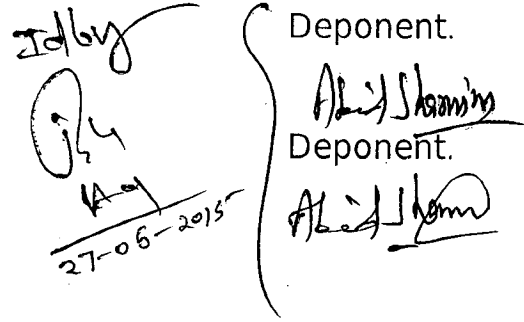 Idby
27-05-2015
Deponent.
Abid Shamim
Deponent.
Abid Shamim